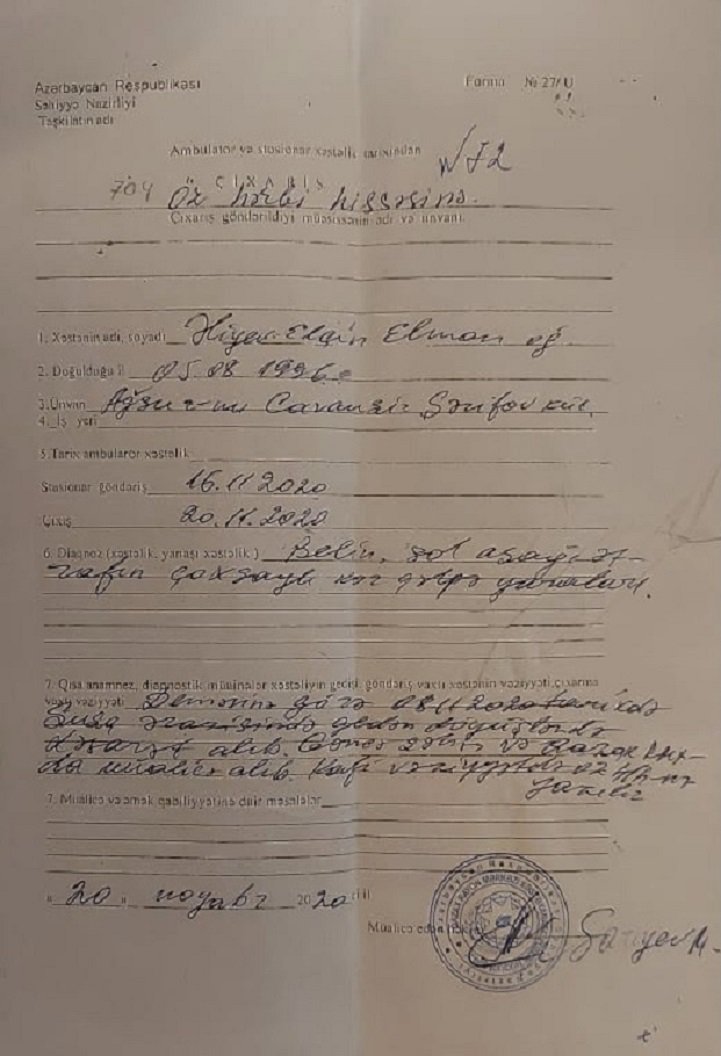 Azərbaycan Respublikası
Səhiyyə Nazirliyi
Təşkilatın adı
Forma № 27/U
Ambulator və stasionar xəstəlik tarixindən
№72
704 ÇIXARIŞ
Öz hərbi hissəsinə.
Çıxarış göndərildiyi müəssisənin adı və ünvanı
1. Xəstənin adı, soyadı Əliyev Elçin Elman oğ.
2. Doğulduğu il 05.08 1996
3. Ünvan Ağsu r-nu Cavanşir Şərifov küç.
4. İş yeri
5. Tarix ambulator xəstəlik
Stasionar göndəriş 16.11 2020
Çıxış 20.11.2020
6. Diaqnoz (xəstəlik, yanaşı xəstəlik) Belin, sol aşağı ət-
rafın çoxsaylı qəlpə yaraları.
7. Qısa anamnez, diaqnostik müayinələr xəstəliyin gedişi, göndəriş vaxtı xəstənin vəziyyəti çıxarma
vaxtı vəziyyəti Deməsinə görə 08.11.2020 tarixdə
Şuşa ərazisində gedən döyüşlərdə
xəsarət alıb. və
da müalicə alıb. Kafi vəziyyətdə öz
yazılır
7. Müalicə və əmək qabiliyyətinə dair məsələlər
" 20 " noyabr 2020 -ci il
Müalicə edən həkim